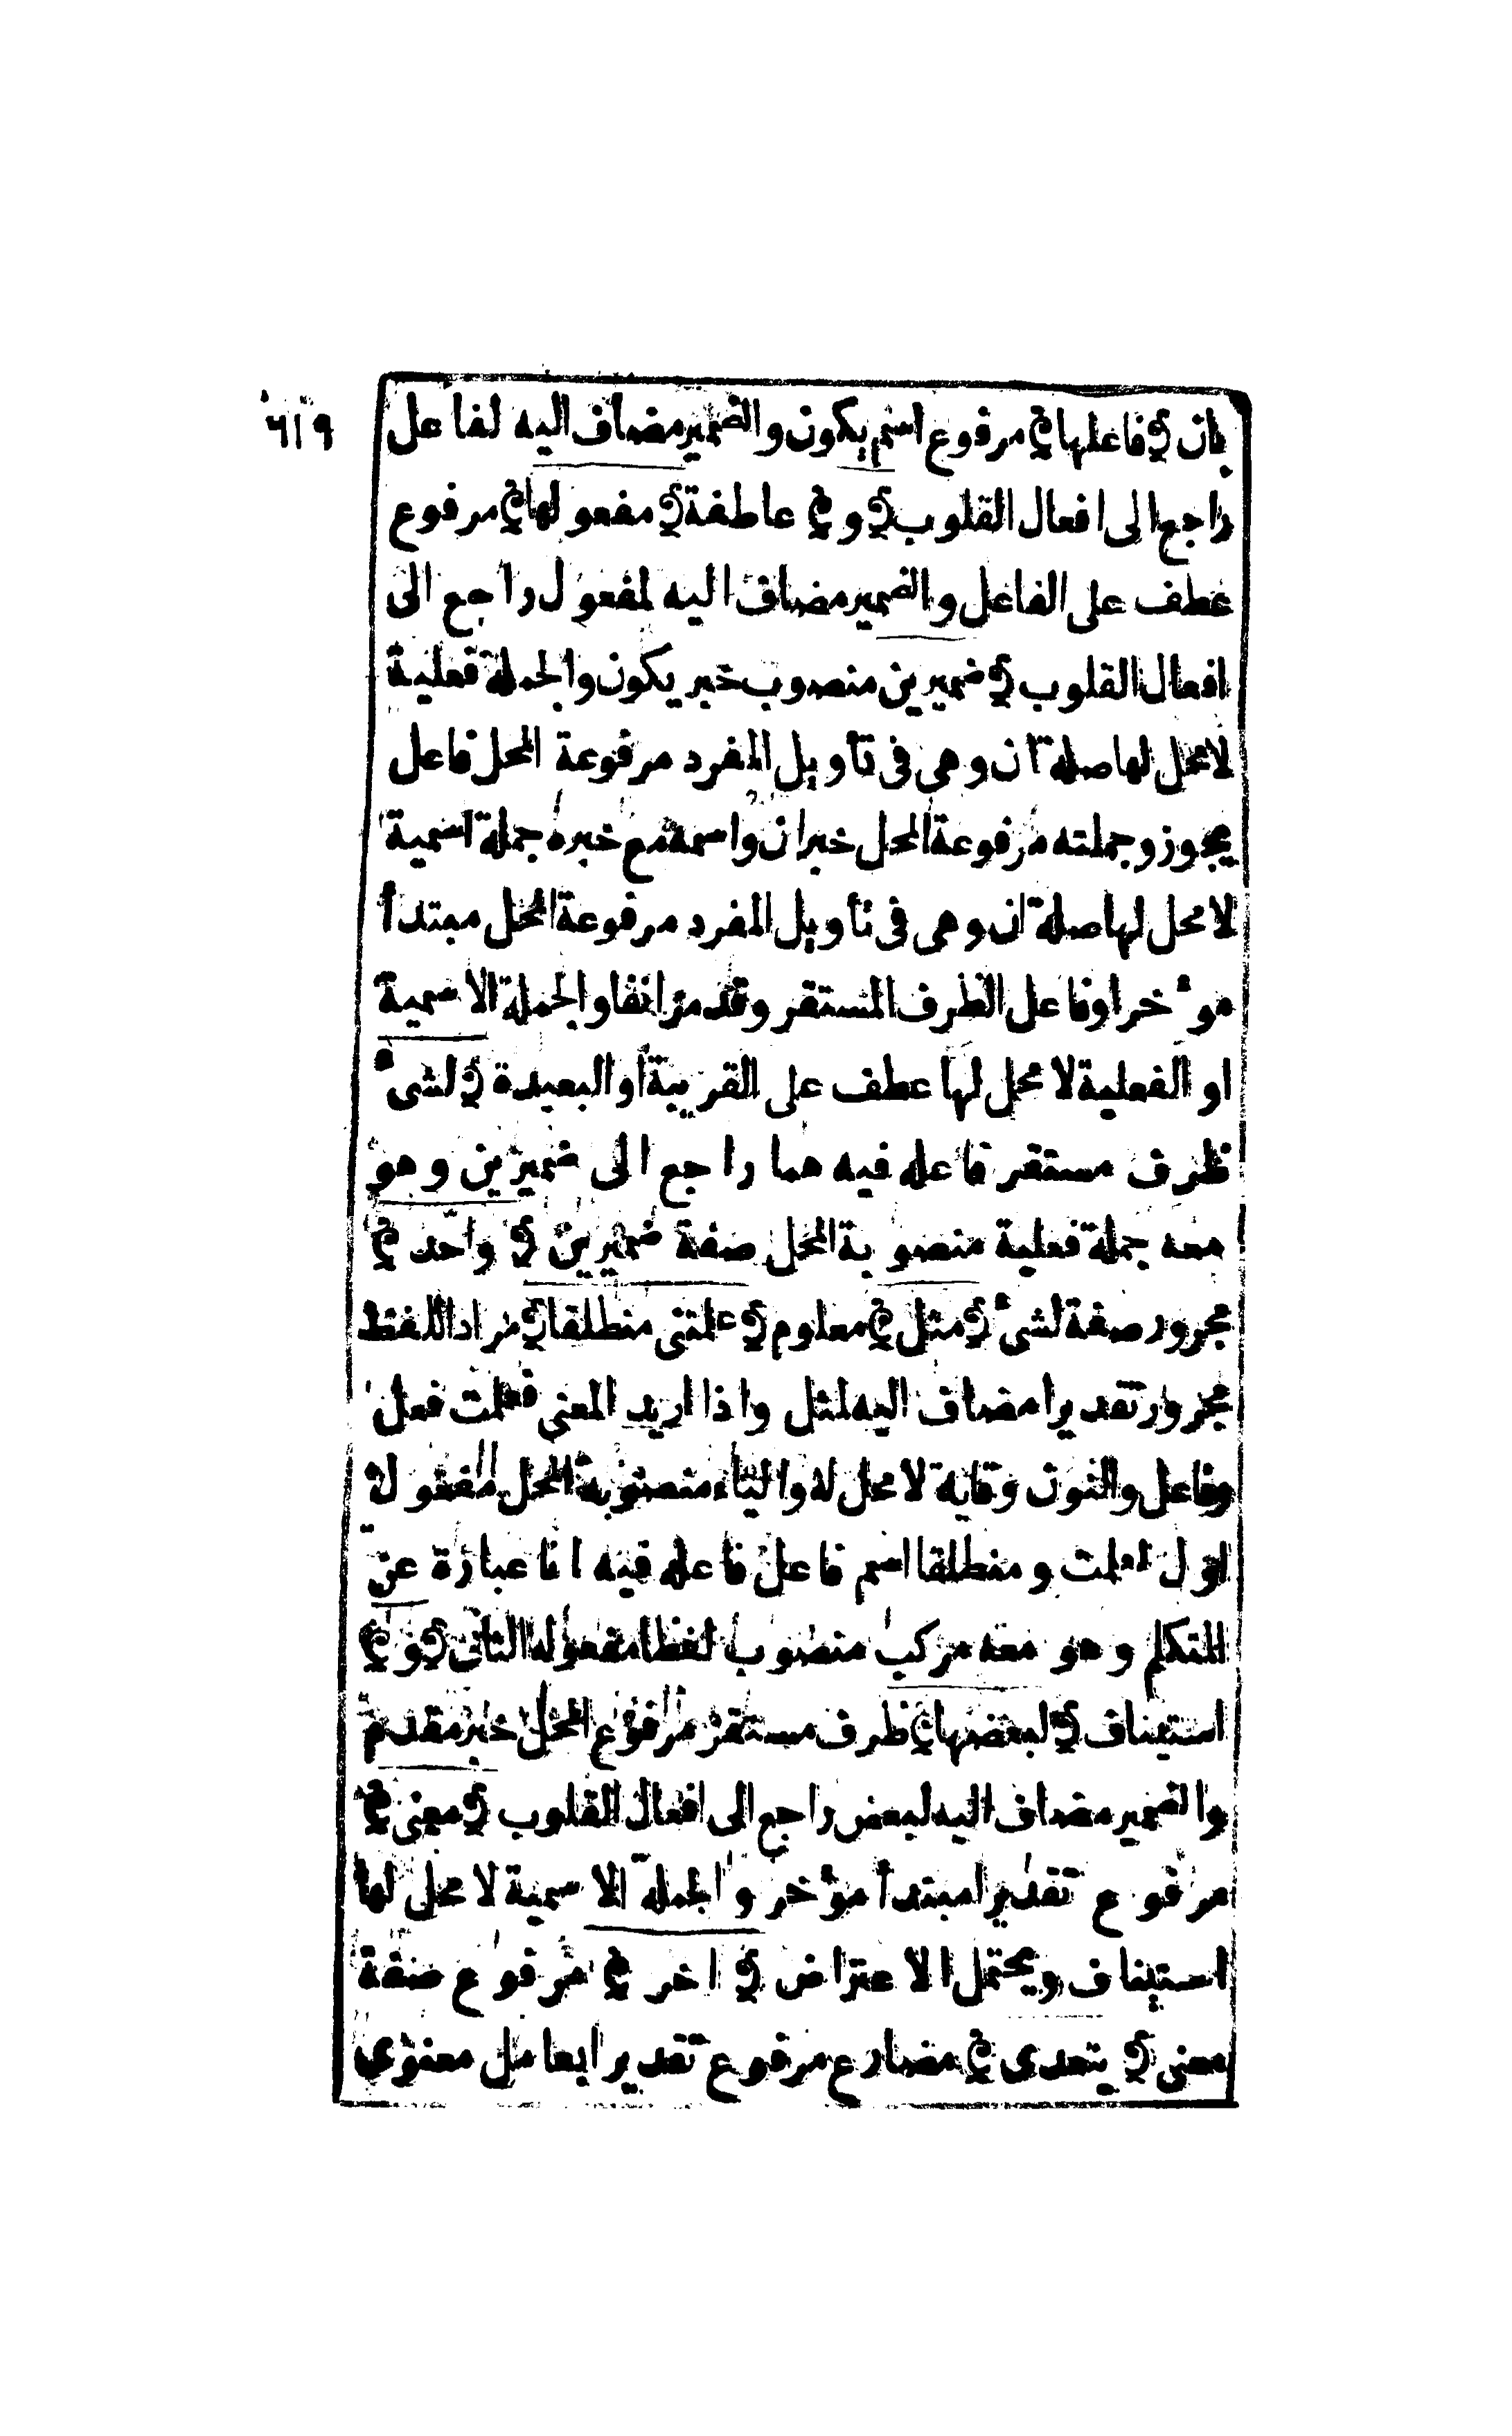 ٦١٩
بان ﴿ فاعلها ﴾ مرفوع اسم يكون والضمير مضاف اليه لفاعل
راجع الى افعال القلوب ﴿ و ﴾ عاطفة ﴿ مفعولها ﴾ مرفوع
عطف على الفاعل والضمير مضاف اليه لمفعول راجع الى
افعال القلوب ﴿ ضميرين منصوب خبر يكون والجملة فعلية
لا محل لها صلة ان وهى فى تأويل المفرد مرفوعة المحل فاعل
يجوز وجملته مرفوعة المحل خبر ان واسمه مع خبره جملة اسمية
لا محل لها صلة ان وهى فى تأويل المفرد مرفوعة المحل مبتدأ
مؤخر او فاعل الظرف المستقر وقد مر انفا والجملة الاسمية
او الفعلية لا محل لها عطف على القريبة أو البعيدة ﴿ لشىء
ظرف مستقر فاعله فيه هما راجع الى ضميرين وهو
معه جملة فعلية منصوبة المحل صفة ضميرين ﴿ واحد ﴾
مجرور صفة لشىء ﴿ مثل ﴾ معلوم ﴿ علمتنى منطلقا ﴾ مراد اللفظ
مجرور تقديرا مضاف اليه لمثل واذا اريد المعنى فعلمت فعل
وفاعل والنون وقاية لا محل له والياء منصوبة المحل مفعول
اول لعلمت ومنطلقا اسم فاعل فاعله فيه انا عبارة عن
المتكلم وهو معه مركب منصوب لفظا مفعوله الثانى ﴿ و ﴾
استيناف ﴿ لبعضها ﴾ ظرف مستقر مرفوع المحل خبر مقدم
والضمير مضاف اليه لبعض راجع الى افعال القلوب ﴿ معنى ﴾
مرفوع تقديرا مبتدأ مؤخر والجملة الاسمية لا محل لها
استيناف ويحتمل الاعتراض ﴿ اخر ﴾ مرفوع صفة
معنى ﴿ يتعدى ﴾ مضارع مرفوع تقديرا بعامل معنوى